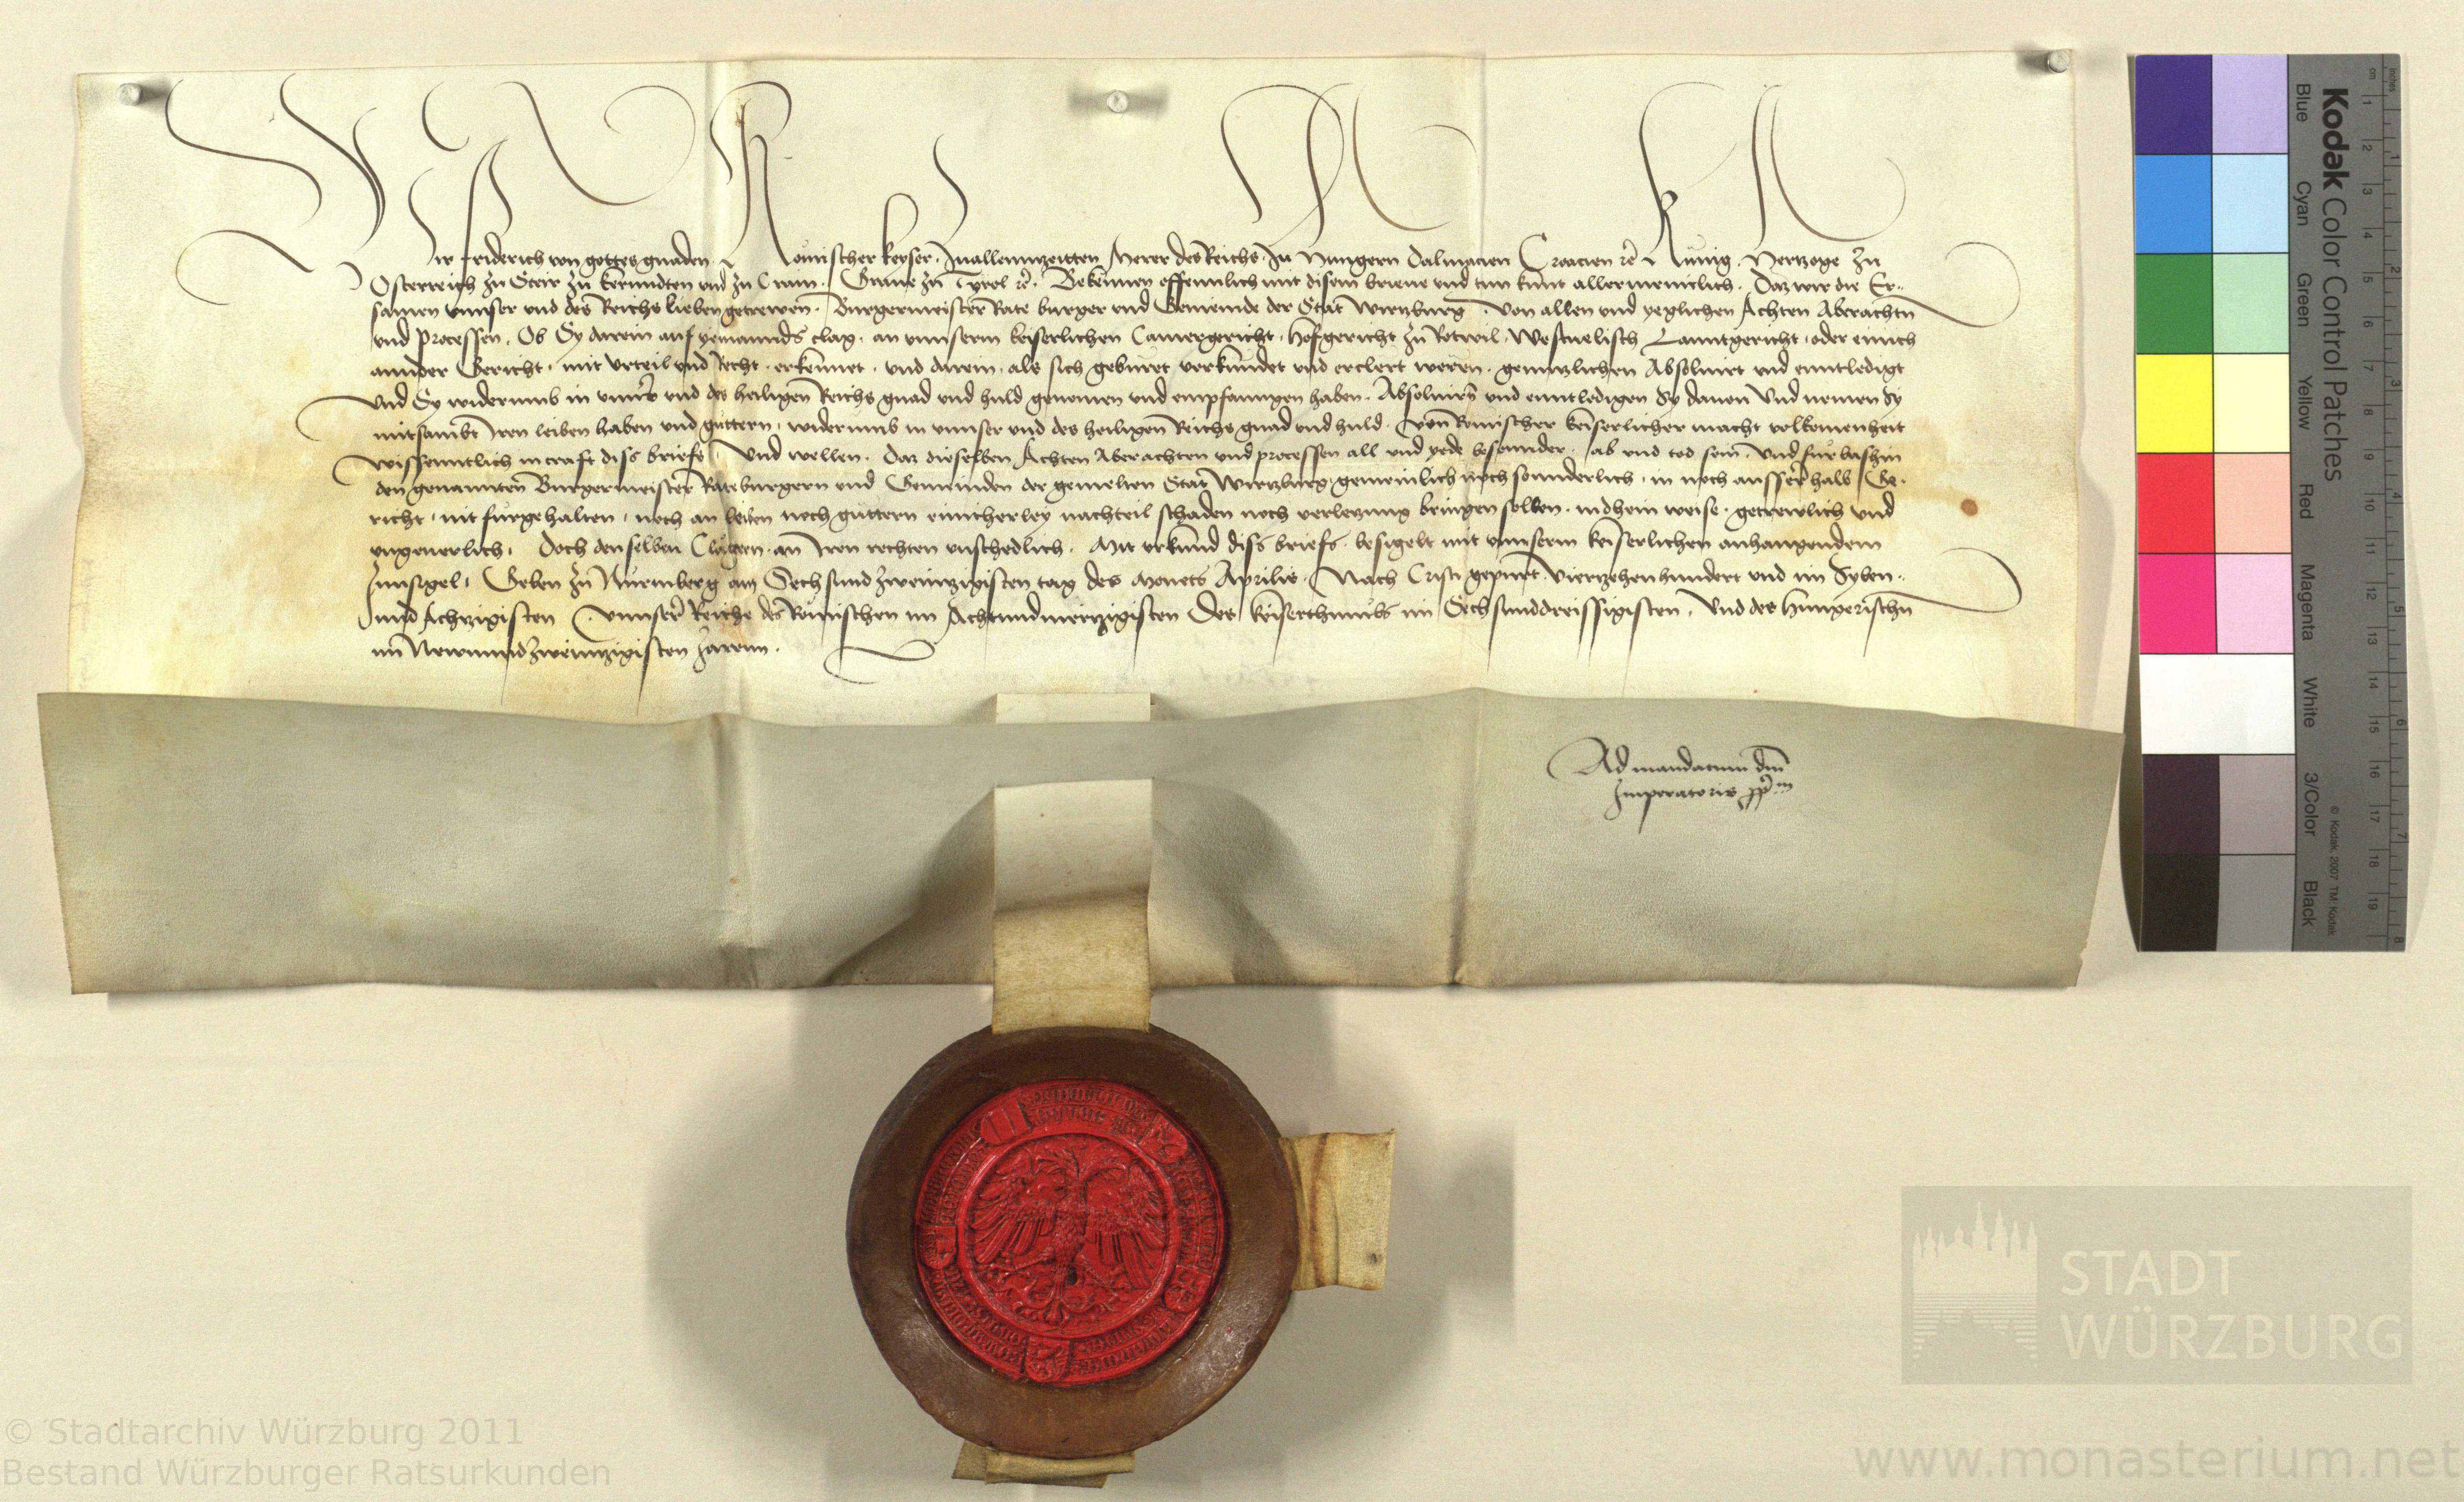 Wir Friderich von gottes gnaden Romischer keyser, Inallenntzeitten Merer des Reichs, Zu Hungern Dalmacien Croacien rc Kunig, Hertzoge zu
Osterreich zu Steir zu kernndten und zu Crain, Graue zu Tyrol rc. Bekennen offennlich mit disem brieue und tun kunt allermenniclich, Daz wir die Er-
samen vnnser und des Reichs lieben getrewen, Burgermeister Rate burger und Gemeinde der Stat Wirtzburg, von allen und yeglichen Achten Aberachtn
und processen, Ob Sy darein auf yemannds clag, an vnnserm keiserlichen Camergericht, Hofgericht zu Rotwil, Westuelisch Lanntgericht, oder einich
annder Gericht, mit Vrteil und Recht, erkennet, und darein, als sich geburet verkundet und erclert weren, genntzlichen Absoluirt und enntledigt
Und Sy widerumb in vnnser und des heiligen Reichs gnad und huld genomen und empfanngen haben, Absoluirn und enntledigen Sy dauon Und nemen Sy
mitsambt Iren leiben haben und guttern, widerumb in vnnser und des heiligen Reichs gnad und huld, von Romischer keiserlicher macht volkomenheit
wissenntlich in craft diss briefs, Und wellen, Daz dieselben Achten Aberachten und processen all und yede besonnder, ab und tod sein, Und fur bashin
den genannten Burgermeister Rate burgern und Gemeinden der gemelten Stat Wirtzburg gemeinlich noch sonnderlich, in noch ausserhalb Ge-
richt, nit furgehalten, noch an leiben noch guttern einicherley nachteil schaden noch verletzung bringen sollen, indhein weise, getrewlich und
ungeuerlich, Doch denselben Clagern an Iren rechten unschedlich, Mit urkund diss briefs, besigelt mit vnnserm keiserlichen anhangendem
Innsigel, Geben zu Nuremberg am Sechsundzweinntzigisten tag des Monets Aprilis, Nach Cristi gepurt, viertzehenhundert und im Syben-
und Achtzigisten Vnnserer Reiche des Romischen im Achtundviertzigisten Des keiserthumbs im Sechsunddreissigisten, Und des Hungerischn
im Newnundzweinntzigisten Jarenn.
Ad mandatum dni
Imperatoris ppm
Kodak Color Control Patches
Blue Cyan Green Yellow Red Magenta White 3/Color Black
© Kodak, 2007 TM: Kodak
cm 1 2 3 4 5 6 7 8 9 10 11 12 13 14 15 16 17 18 19
inches 1 2 3 4 5 6 7 8
STADT
WÜRZBURG
© Stadtarchiv Würzburg 2011
Bestand Würzburger Ratsurkunden
www.monasterium.net